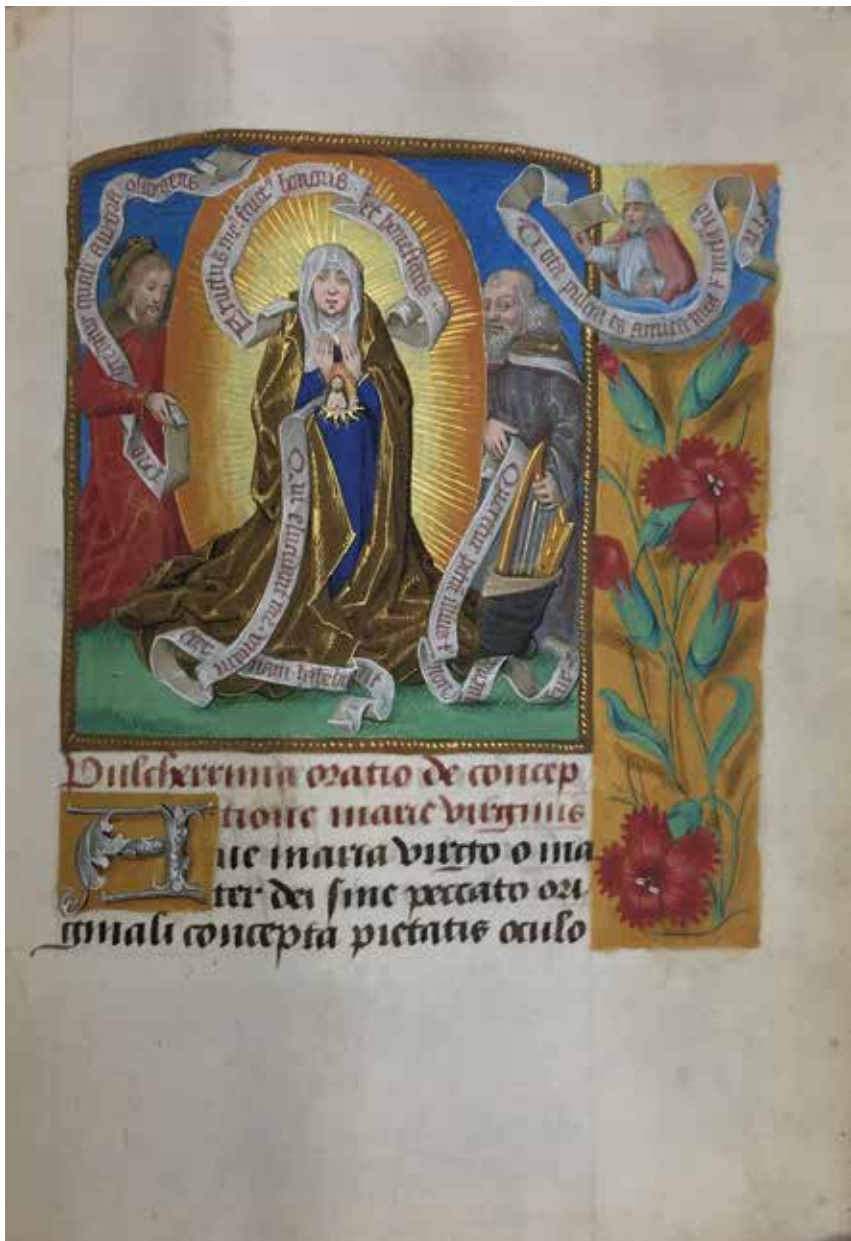 Fructus mei flores honoris et honestatis
Tota pulchra es amica mea et
Qui elucidant me
vitam habebunt
Queretur peccatum illius et non
Pulcherrima oratio de concep
tione marie virginis
Aue maria virgo o ma
ter dei sine peccato ori
ginali concepta pietatis oculo